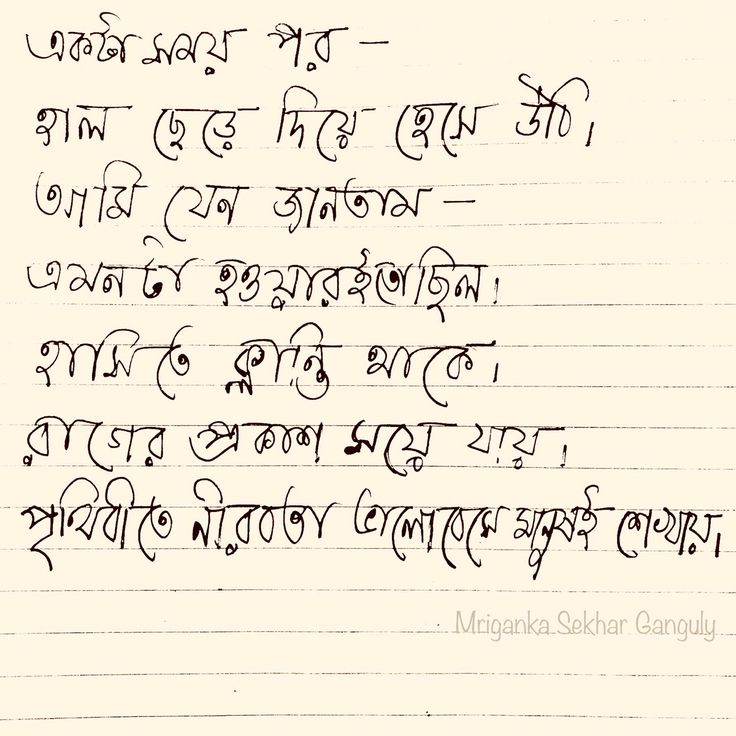 একটা সময় পর —
হাল ছেড়ে দিয়ে হেসে উঠি।
আমি যেন জানতাম —
এমনটা হওয়ারইতো ছিল।
হাসিতে ক্লান্তি থাকে।
রাগের প্রকাশ সয়ে যায়।
পৃথিবীতে নীরবতা ভালোবেসে মানুষই শেখায়।
Mriganka Sekhar Ganguly